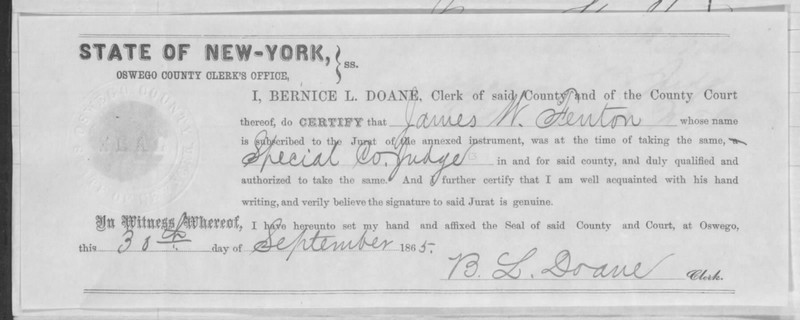 STATE OF NEW-YORK, } ss.
OSWEGO COUNTY CLERK'S OFFICE,
I, BERNICE L. DOANE, Clerk of said County and of the County Court
thereof, do CERTIFY that James W. Fenton whose name
is subscribed to the Jurat of the annexed instrument, was at the time of taking the same, a
Special Co. Judge in and for said county, and duly qualified and
authorized to take the same. And I further certify that I am well acquainted with his hand
writing, and verily believe the signature to said Jurat is genuine.
In Witness Whereof, I have hereunto set my hand and affixed the Seal of said County and Court, at Oswego,
this 30th day of September 1865.
B. L. Doane Clerk.
OSWEGO COUNTY